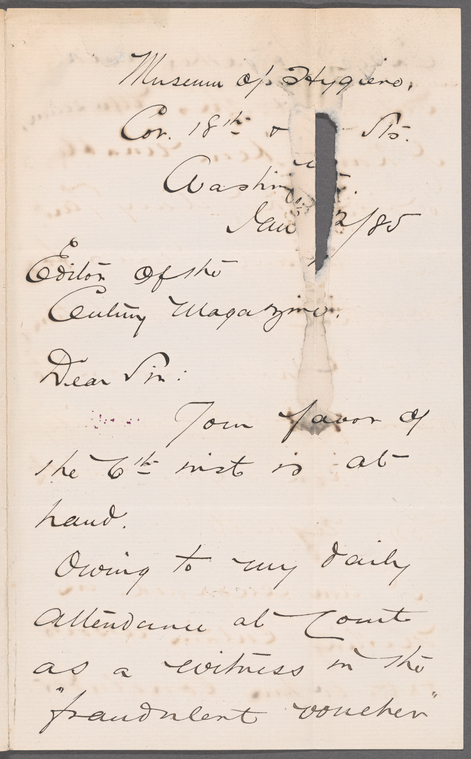 Museum of Hygiene,
Cor. 18th & Sts.
Washin
Jan 2/85
Editor of the
Century Magazine.
Dear Sir:
Your favor of
the 6th inst is at
hand.
Owing to my daily
attendance at Court
as a witness in the
"fraudulent voucher"